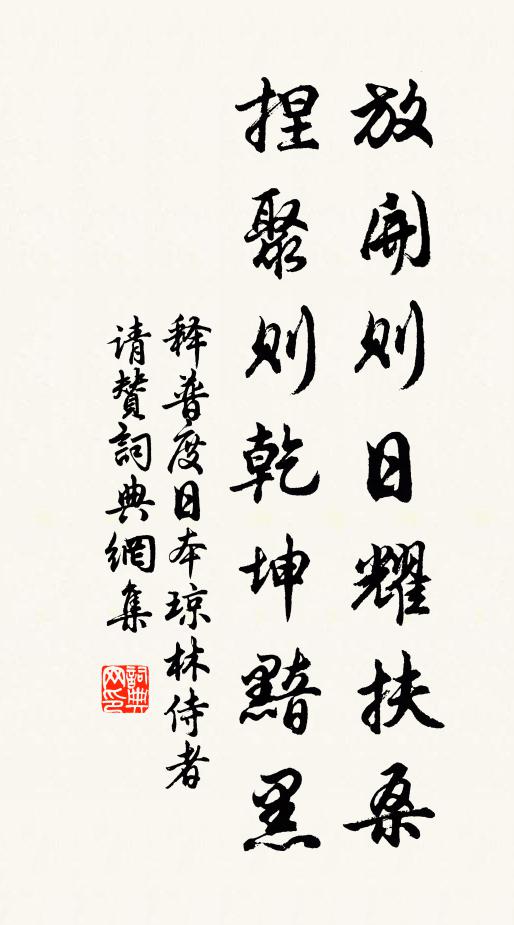 放開则日耀扶桑
捏聚则乾坤黯黑
释普度日本琼林侍者
请赞詞典網集
詞典
网印